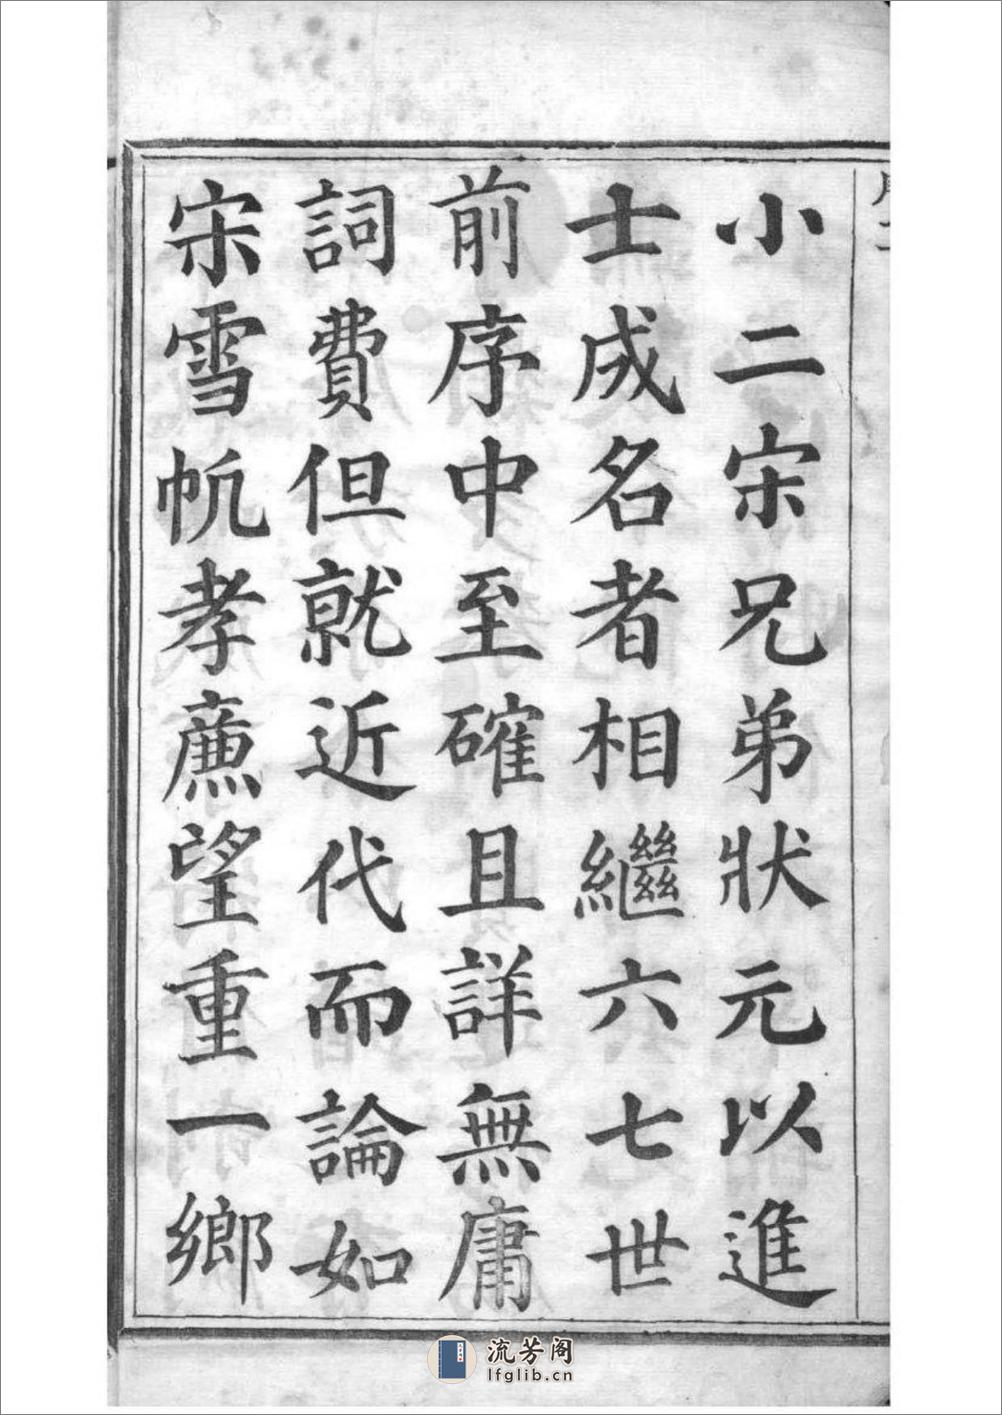 小二宋兄弟狀元以進
士成名者相繼六七世
前序中至確且詳無庸
詞費但就近代而論如
宋雪帆孝廉望重一鄉
流芳阁
lfglib.cn